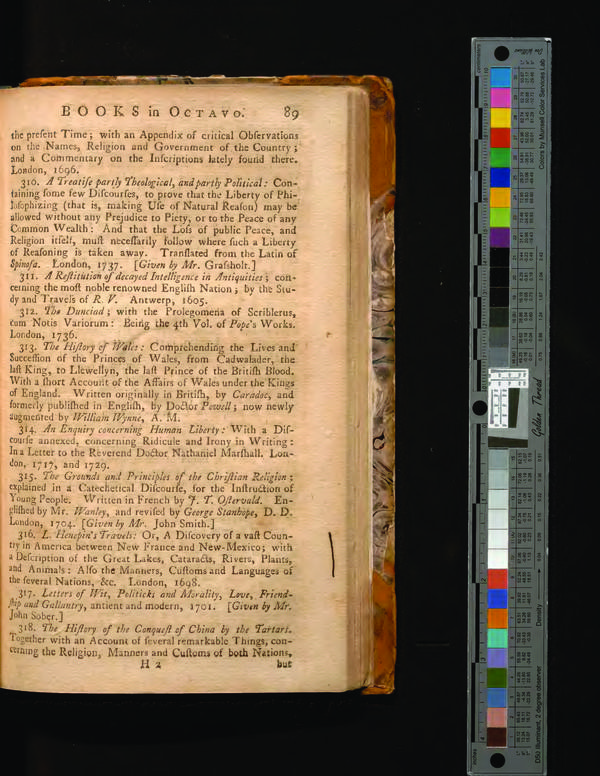 BOOKS in OCTAVO. 89
the preſent Time; with an Appendix of critical Obſervations
on the Names, Religion and Government of the Country;
and a Commentary on the Inſcriptions lately found there.
London, 1696.
310. A Treatiſe partly Theological, and partly Political: Con-
taining ſome few Diſcourſes, to prove that the Liberty of Phi-
loſophizing (that is, making Uſe of Natural Reaſon) may be
allowed without any Prejudice to Piety, or to the Peace of any
Common Wealth: And that the Loſs of public Peace, and
Religion itſelf, muſt neceſſarily follow where ſuch a Liberty
of Reaſoning is taken away. Tranſlated from the Latin of
Spinoſa. London, 1737. [Given by Mr. Graſsholt.]
311. A Reſtitution of decayed Intelligence in Antiquities; con-
cerning the moſt noble renowned Engliſh Nation; by the Stu-
dy and Travels of R. V. Antwerp, 1605.
312. The Dunciad; with the Prolegomena of Scriblerus,
cum Notis Variorum: Being the 4th Vol. of Pope's Works.
London, 1736.
313. The Hiſtory of Wales: Comprehending the Lives and
Succeſſion of the Princes of Wales, from Cadwalader, the
laſt King, to Llewellyn, the laſt Prince of the Britiſh Blood.
With a ſhort Account of the Affairs of Wales under the Kings
of England. Written originally in Britiſh, by Caradoc, and
formerly publiſhed in Engliſh, by Doctor Powell; now newly
augmented by William Wynne, A. M.
314. An Enquiry concerning Human Liberty: With a Diſ-
courſe annexed, concerning Ridicule and Irony in Writing:
In a Letter to the Reverend Doctor Nathaniel Marſhall. Lon-
don, 1717, and 1729.
315. The Grounds and Principles of the Chriſtian Religion;
explained in a Catechetical Diſcourſe, for the Inſtruction of
Young People. Written in French by J. T. Oſtervald. En-
gliſhed by Mr. Wanley, and reviſed by George Stanhope, D. D.
London, 1704. [Given by Mr. John Smith.]
316. L. Henepin's Travels: Or, A Diſcovery of a vaſt Coun-
try in America between New France and New-Mexico; with
a Deſcription of the Great Lakes, Cataracts, Rivers, Plants,
and Animals: Alſo the Manners, Cuſtoms and Languages of
the ſeveral Nations, &c. London, 1698.
317. Letters of Wit, Politicks and Morality, Love, Friend-
ſhip and Gallantry, antient and modern, 1701. [Given by Mr.
John Sober.]
318. The Hiſtory of the Conqueſt of China by the Tartars.
Together with an Account of ſeveral remarkable Things, con-
cerning the Religion, Manners and Cuſtoms of both Nations,
H 2 but
Colors by Munsell Color Services Lab
Golden Thread
Density
D50 Illuminant, 2 degree observer